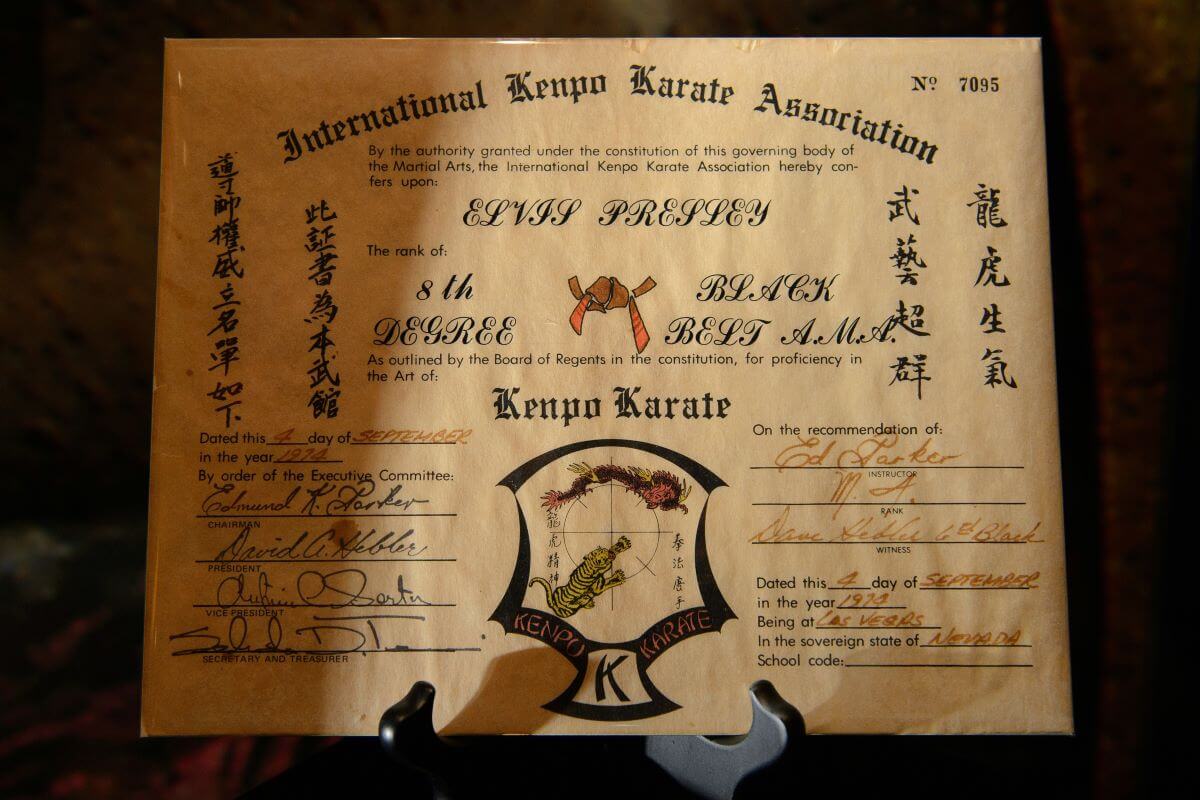 International Kenpo Karate Association
Nº 7095
By the authority granted under the constitution of this governing body of
the Martial Arts, the International Kenpo Karate Association hereby con-
fers upon:
ELVIS PRESLEY
The rank of:
8th BLACK
DEGREE BELT A.M.A.
As outlined by the Board of Regents in the constitution, for proficiency in
the Art of:
Kenpo Karate
龍虎生氣
武藝超群
此証書為本武館
師權威立名單如下
Dated this 4 day of SEPTEMBER
in the year 1974
By order of the Executive Committee:
Edmund K. Parker
CHAIRMAN
David A. Hebler
PRESIDENT
VICE PRESIDENT
SECRETARY AND TREASURER
龍虎精神
拳法唐手
KENPO KARATE
K
On the recommendation of:
Ed Parker
INSTRUCTOR
M. A.
RANK
Dave Hebler 6th Black
WITNESS
Dated this 4 day of SEPTEMBER
in the year 1974
Being at LAS VEGAS
In the sovereign state of NEVADA
School code: